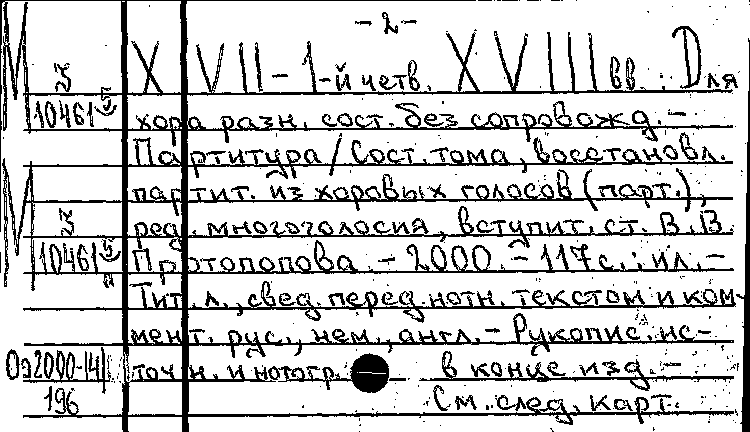 - 2 -
М XVII - 1-й четв. XVIII вв.: Для
10461 хора разн. сост. без сопровожд. -
Партитура / Сост. тома, восстановл.
М партит. из хоровых голосов (парт.),
ред. многоголосия, вступит. ст. В.В.
10461 Протопопова. - 2000. - 117 с.: ил. -
Тит. л., свед. перед нотн. текстом и ком-
мент. рус., нем., англ. - Рукопис. ис-
2000-14 точн. и нотогр. в конце изд. -
196 См. след. карт.